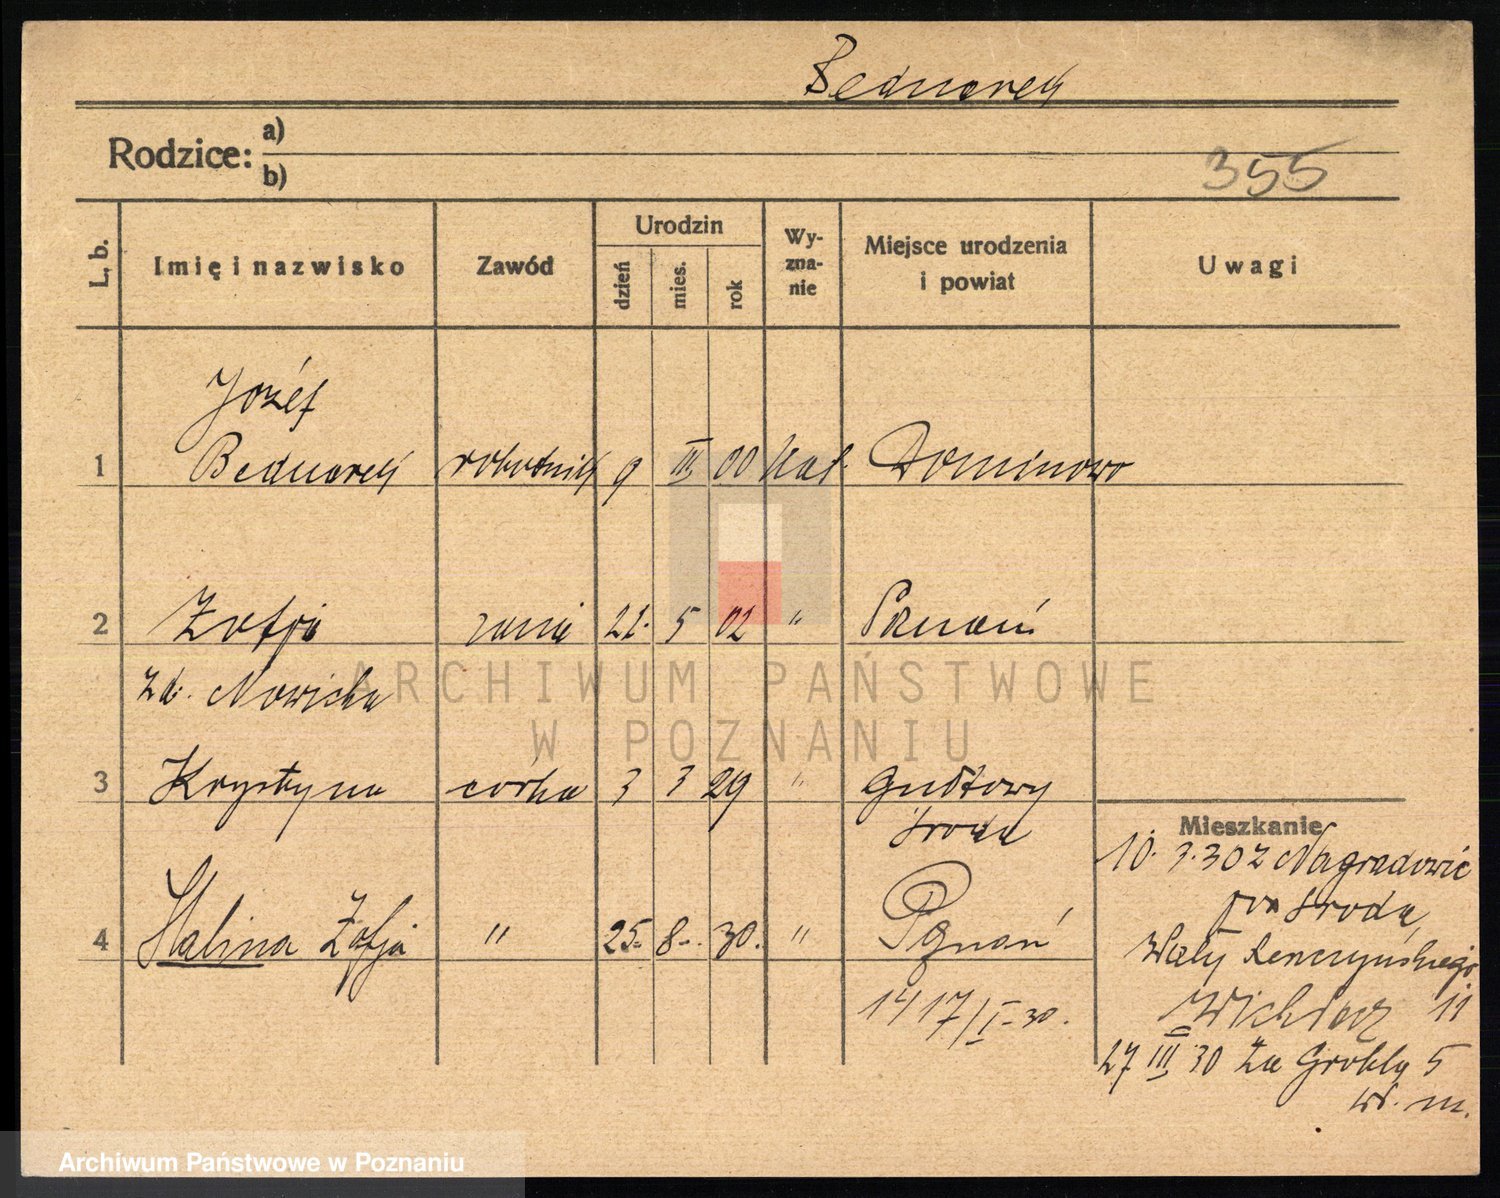 Bednarek
Rodzice: a)
b)
355
L. b. Imię i nazwisko Zawód Urodzin dzień mies. rok Wy-zna-nie Miejsce urodzenia i powiat Uwagi
Józef
1 Bednarek robotnik 9 III 00 kat. Dominowo
2 Zofja żona 22. 5 02 " Poznań
zd. Nowicka
3 Krystyna córka 3 3 29 " Gułtowy
Środa
Mieszkanie
10. 3. 30 z Nagradowic
pow Środa
4 Halina Zofja " 25. 8. 30. " Poznań
Wały
11
14 17/I-30.
27 III 30 Za Groblą 5
w. m.
ARCHIWUM PAŃSTWOWE
W POZNANIU
Archiwum Państwowe w Poznaniu